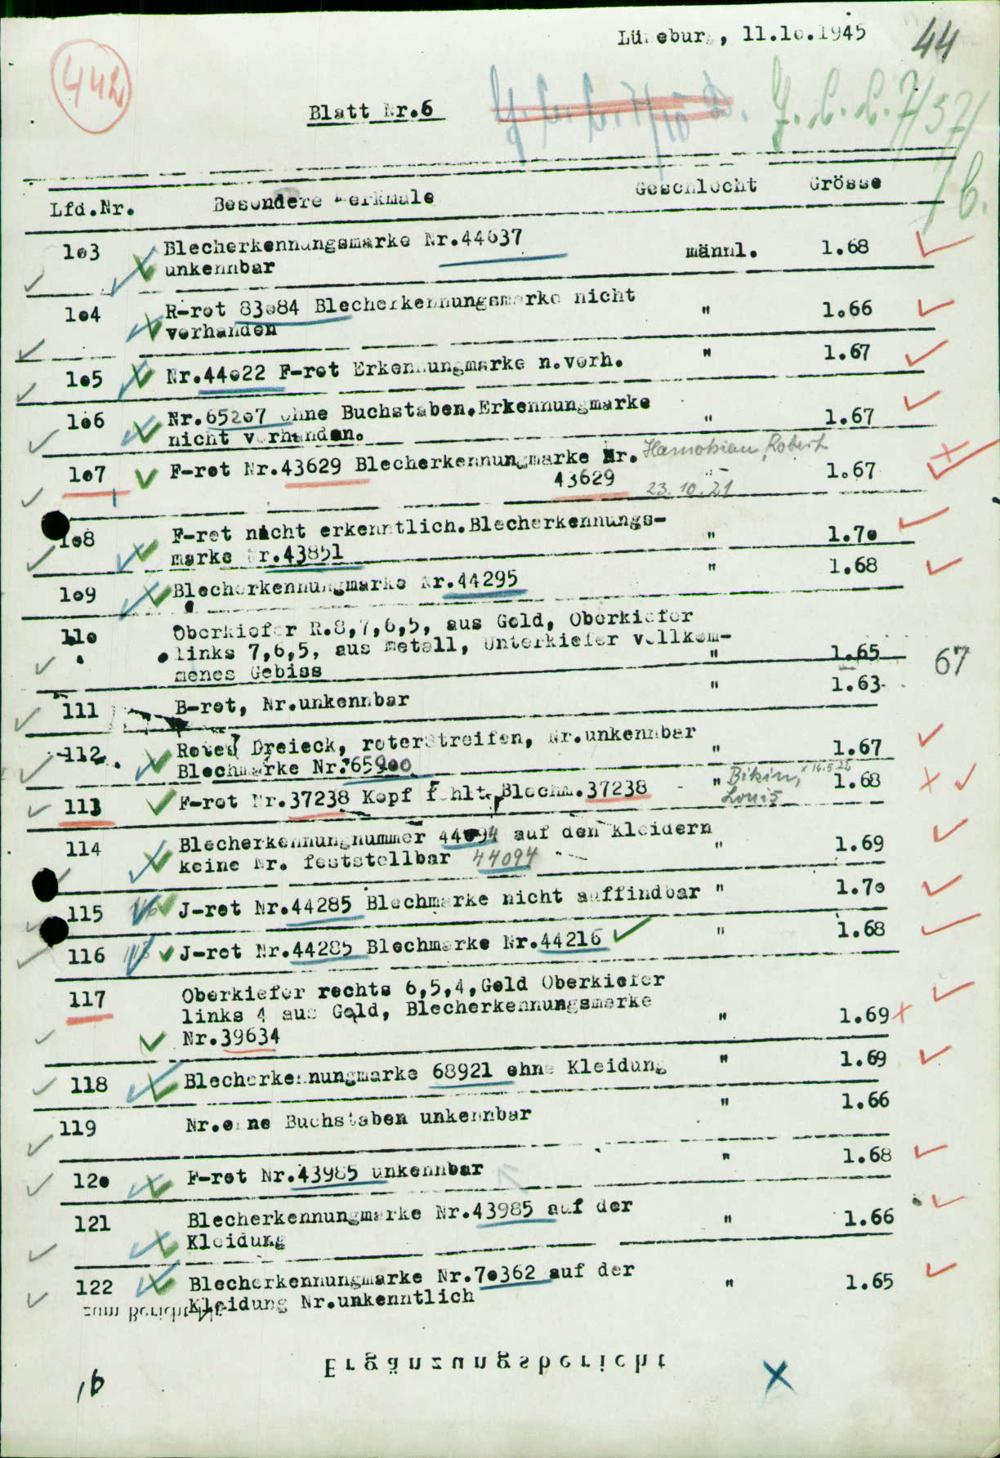 Lüneburg, 11.10.1945
44
442
Blatt Nr.6
J.C.C.7/37/
16.
Lfd.Nr. Besondere Merkmale Geschlecht Grösse
1o3 Blecherkennungsmarke Nr.44637 männl. 1.68
unkennbar
1o4 R-rot 83o84 Blecherkennungsmarke nicht " 1.66
vorhanden
1o5 Nr.44o22 F-rot Erkennungmarke n.vorh. " 1.67
1o6 Nr.652o7 ohne Buchstaben.Erkennungmarke " 1.67
nicht vorhanden.
1o7 F-rot Nr.43629 Blecherkennungmarke Nr. Robert 1.67
43629 23.10.21 "
1o8 F-rot nicht erkenntlich.Blecherkennungs-
marke Nr.43851 " 1.7o
1o9 Blecherkennungmarke Nr.44295 " 1.68
11o Oberkiefer R.8,7,6,5, aus Gold, Oberkiefer
links 7,6,5, aus Metall, Unterkiefer vollkom-
menes Gebiss " 1.65 67
111 B-rot, Nr.unkennbar " 1.63
112. Rotes Dreieck, roterStreifen, Nr.unkennbar " 1.67
Blechmarke Nr.659oo
113 F-rot Nr.37238 Kopf fehlt, Blechm.37238 " Louis 1.68
114 Blecherkennungnummer 44o94 auf den Kleidern " 1.69
keine Nr. feststellbar 44094
115 J-rot Nr.44285 Blechmarke nicht auffindbar " 1.7o
116 J-rot Nr.44285 Blechmarke Nr.44216 " 1.68
117 Oberkiefer rechts 6,5,4,Gold Oberkiefer
links 4 aus Gold, Blecherkennungsmarke " 1.69
Nr.39634
118 Blecherkennungmarke 68921 ohne Kleidung " 1.69
119 Nr.ohne Buchstaben unkennbar " 1.66
12o F-rot Nr.43985 unkennbar " 1.68
121 Blecherkennungmarke Nr.43985 auf der " 1.66
Kleidung
122 Blecherkennungmarke Nr.7o362 auf der " 1.65
Kleidung Nr.unkenntlich
zum Bericht
Ergänzungsbericht